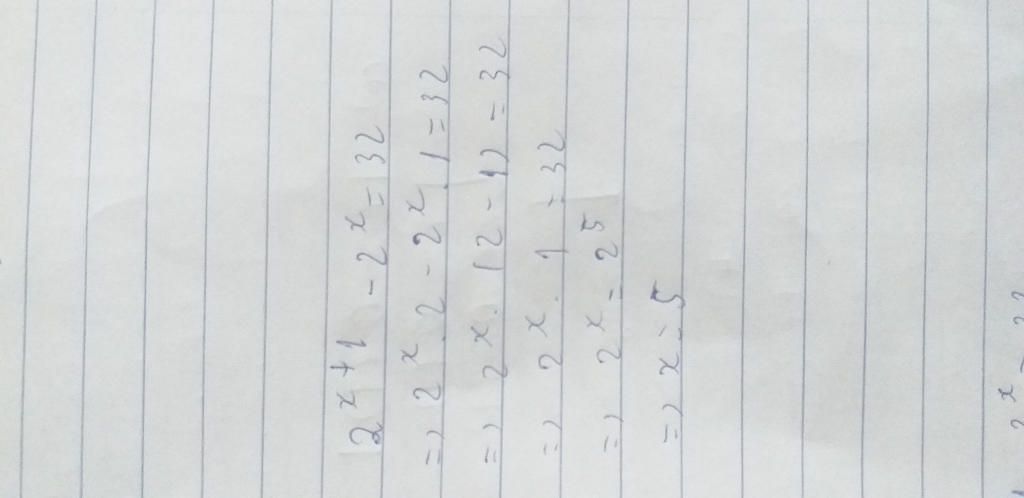 2^x+1 - 2^x = 32
=> 2^x . 2 - 2^x . 1 = 32
=> 2^x . (2 - 1) = 32
=> 2^x . 1 = 32
=> 2^x = 2^5
=> x = 5